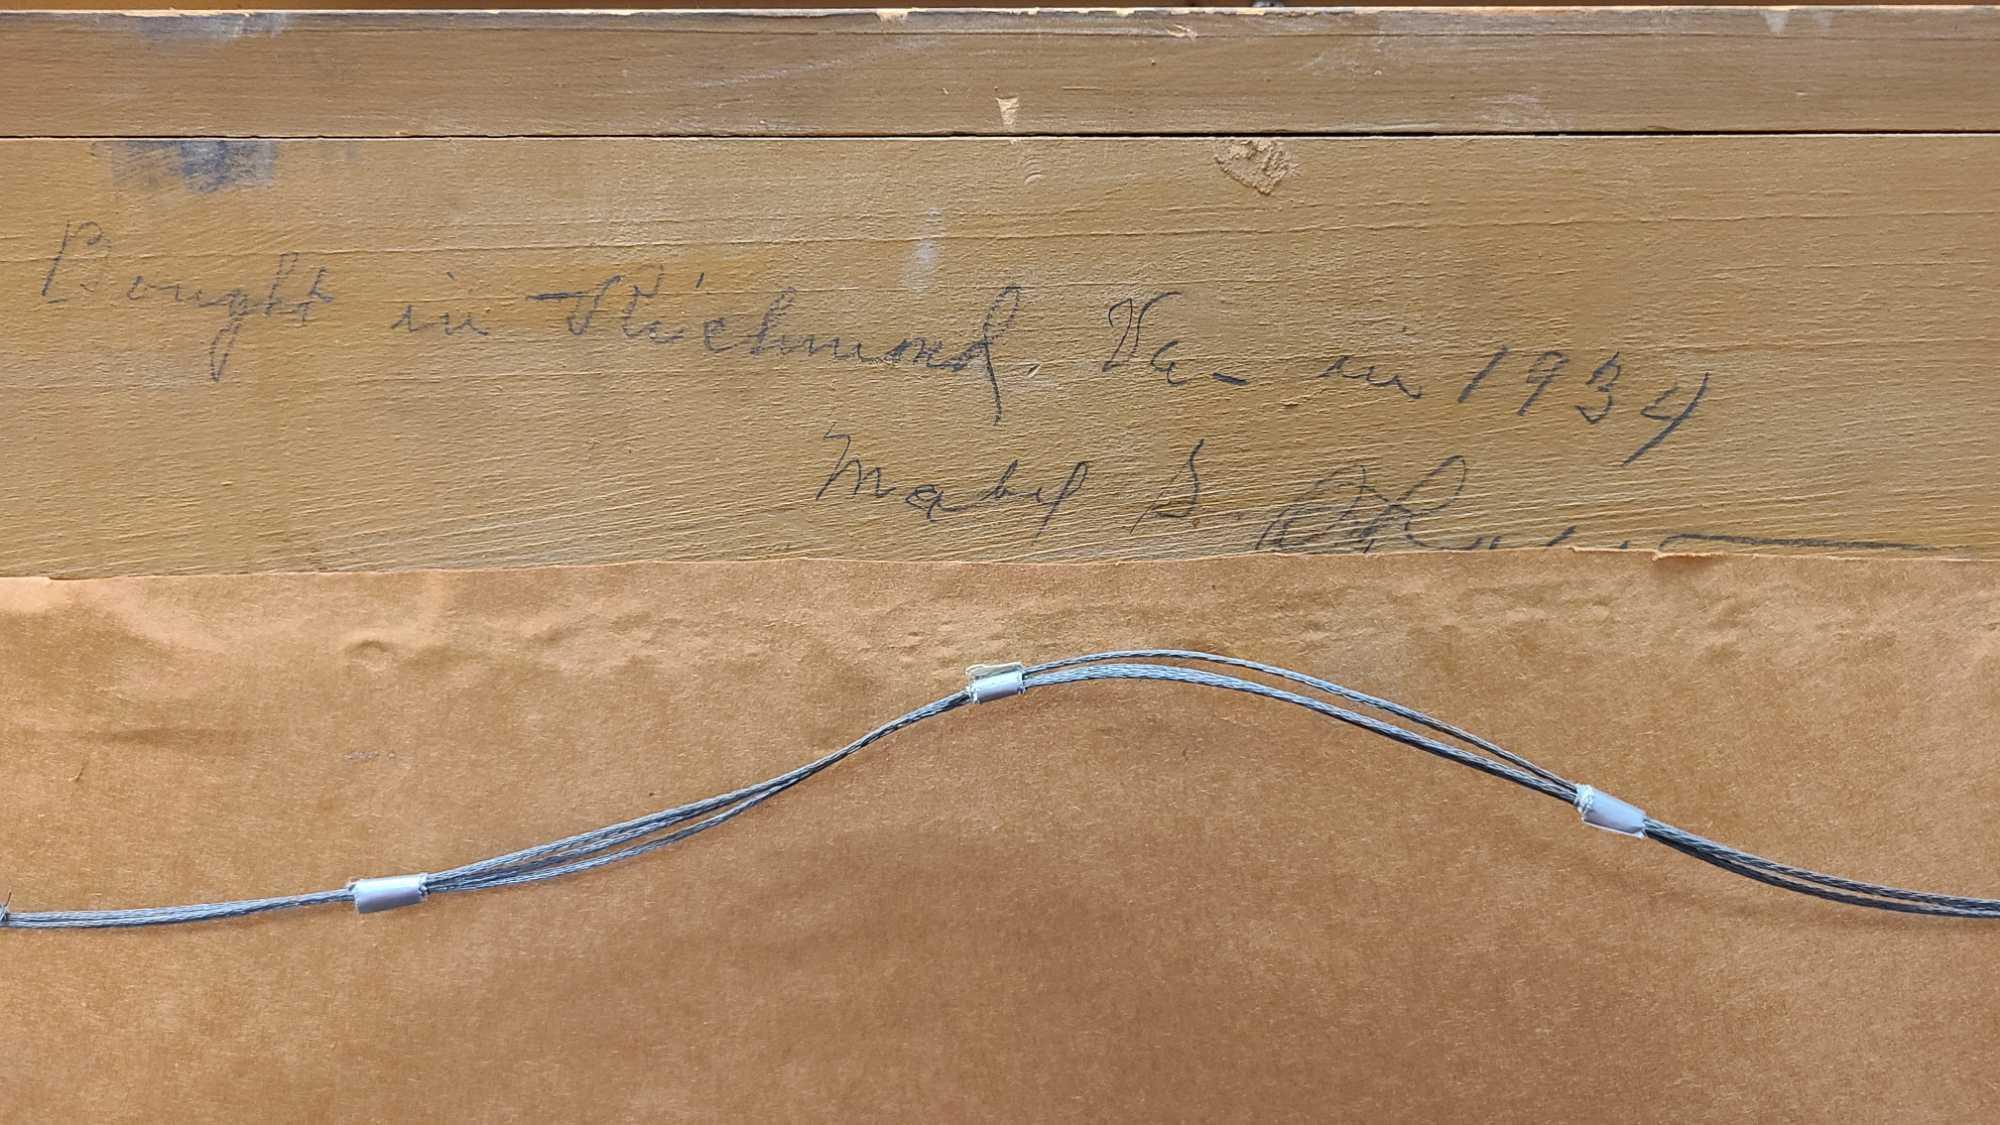 Bought in Richmond, Va - in 1934
Mabel S.